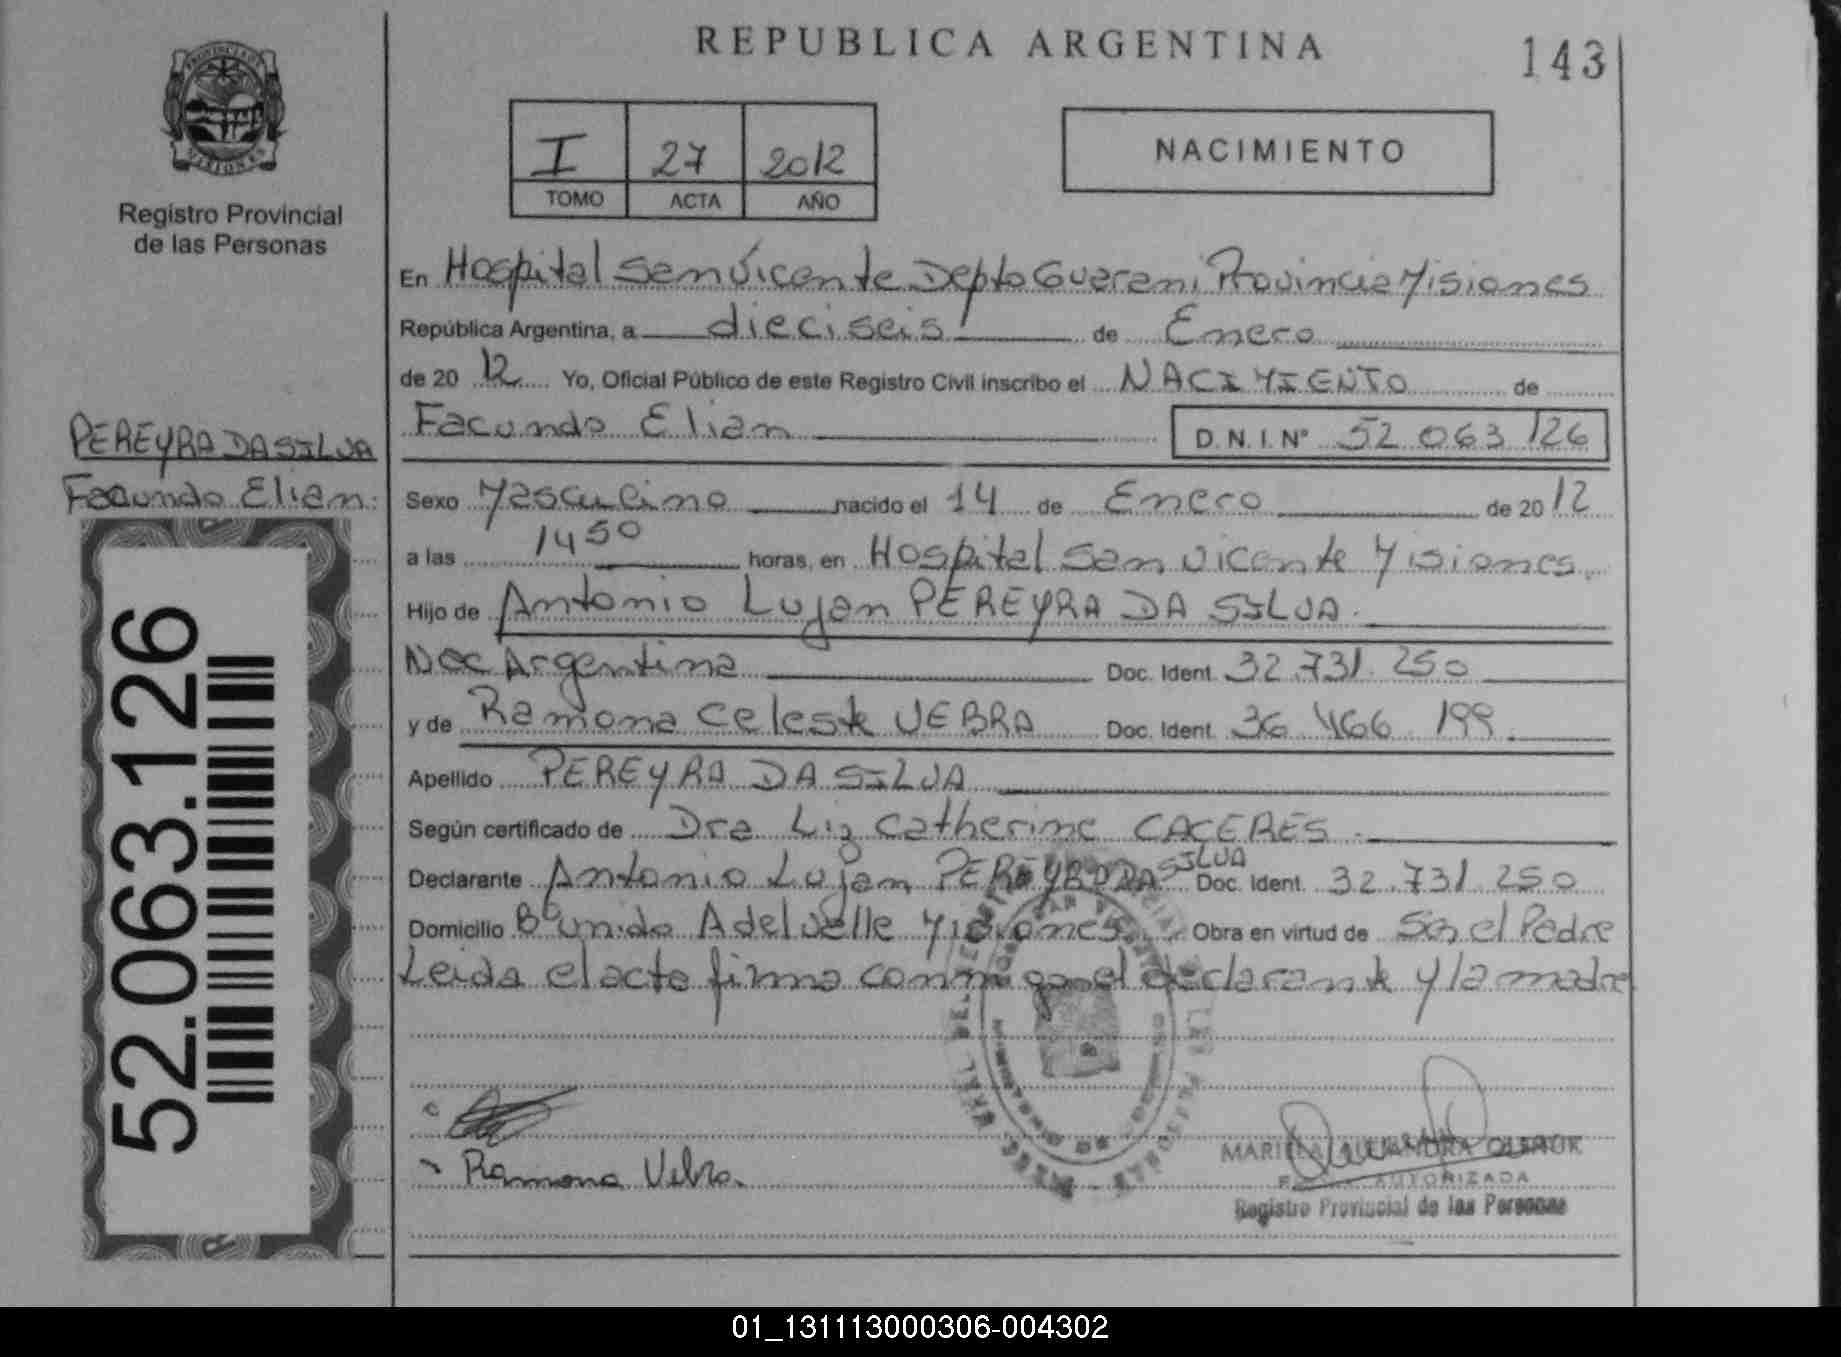 REPUBLICA ARGENTINA
143
PROVINCIA DE
MISIONES
Registro Provincial
de las Personas
I 27 2012
TOMO ACTA AÑO
NACIMIENTO
En Hospital San Vicente Depto Guarani Provincia Misiones
República Argentina, a dieciseis de Enero
de 20 12 Yo, Oficial Público de este Registro Civil inscribo el NACIMIENTO de
Facundo Elian D.N.I.Nº 52 063 126
PEREYRA DA SILVA
Facundo Elian
52.063.126
Sexo Masculino nacido el 14 de Enero de 20 12
a las 14 50 horas, en Hospital San Vicente Misiones.
Hijo de Antonio Lujan PEREYRA DA SILVA.
Nac Argentina Doc. Ident. 32.731.250
y de Ramona Celeste VEBRA Doc. Ident. 36.466.199.
Apellido PEREYRA DA SILVA
Según certificado de Dra Liz Catherine CACERES.
Declarante Antonio Lujan PEREYRA DA SILVA Doc. Ident. 32.731.250
Domicilio Bº Unido A del Valle Misiones Obra en virtud de Ser el Padre
Leida el acta firma conmigo el declarante y la madre
Ramona Vebra.
AUTORIZADA
Registro Provincial de las Personas
01_131113000306-004302